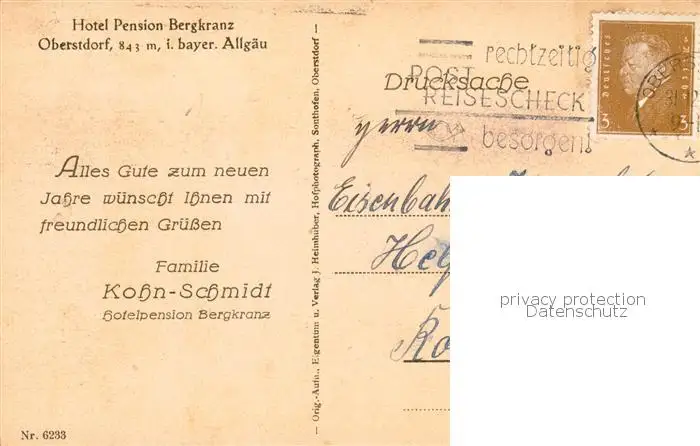 Hotel Pension Bergkranz
Oberstdorf, 843 m, i. bayer. Allgäu
Alles Gute zum neuen
Jahre wünscht Ihnen mit
freundlichen Grüßen
Familie
Kohn-Schmidt
Hotelpension Bergkranz
Nr. 6233
— Orig.-Aufn., Eigentum u. Verlag J. Heimhuber, Hofphotograph, Sonthofen, Oberstdorf —
Drucksache
rechtzeitig
POST
REISESCHECK
besorgen!
Deutsches Reich
3 3
Herrn
Eisenbahn
privacy protection
Datenschutz